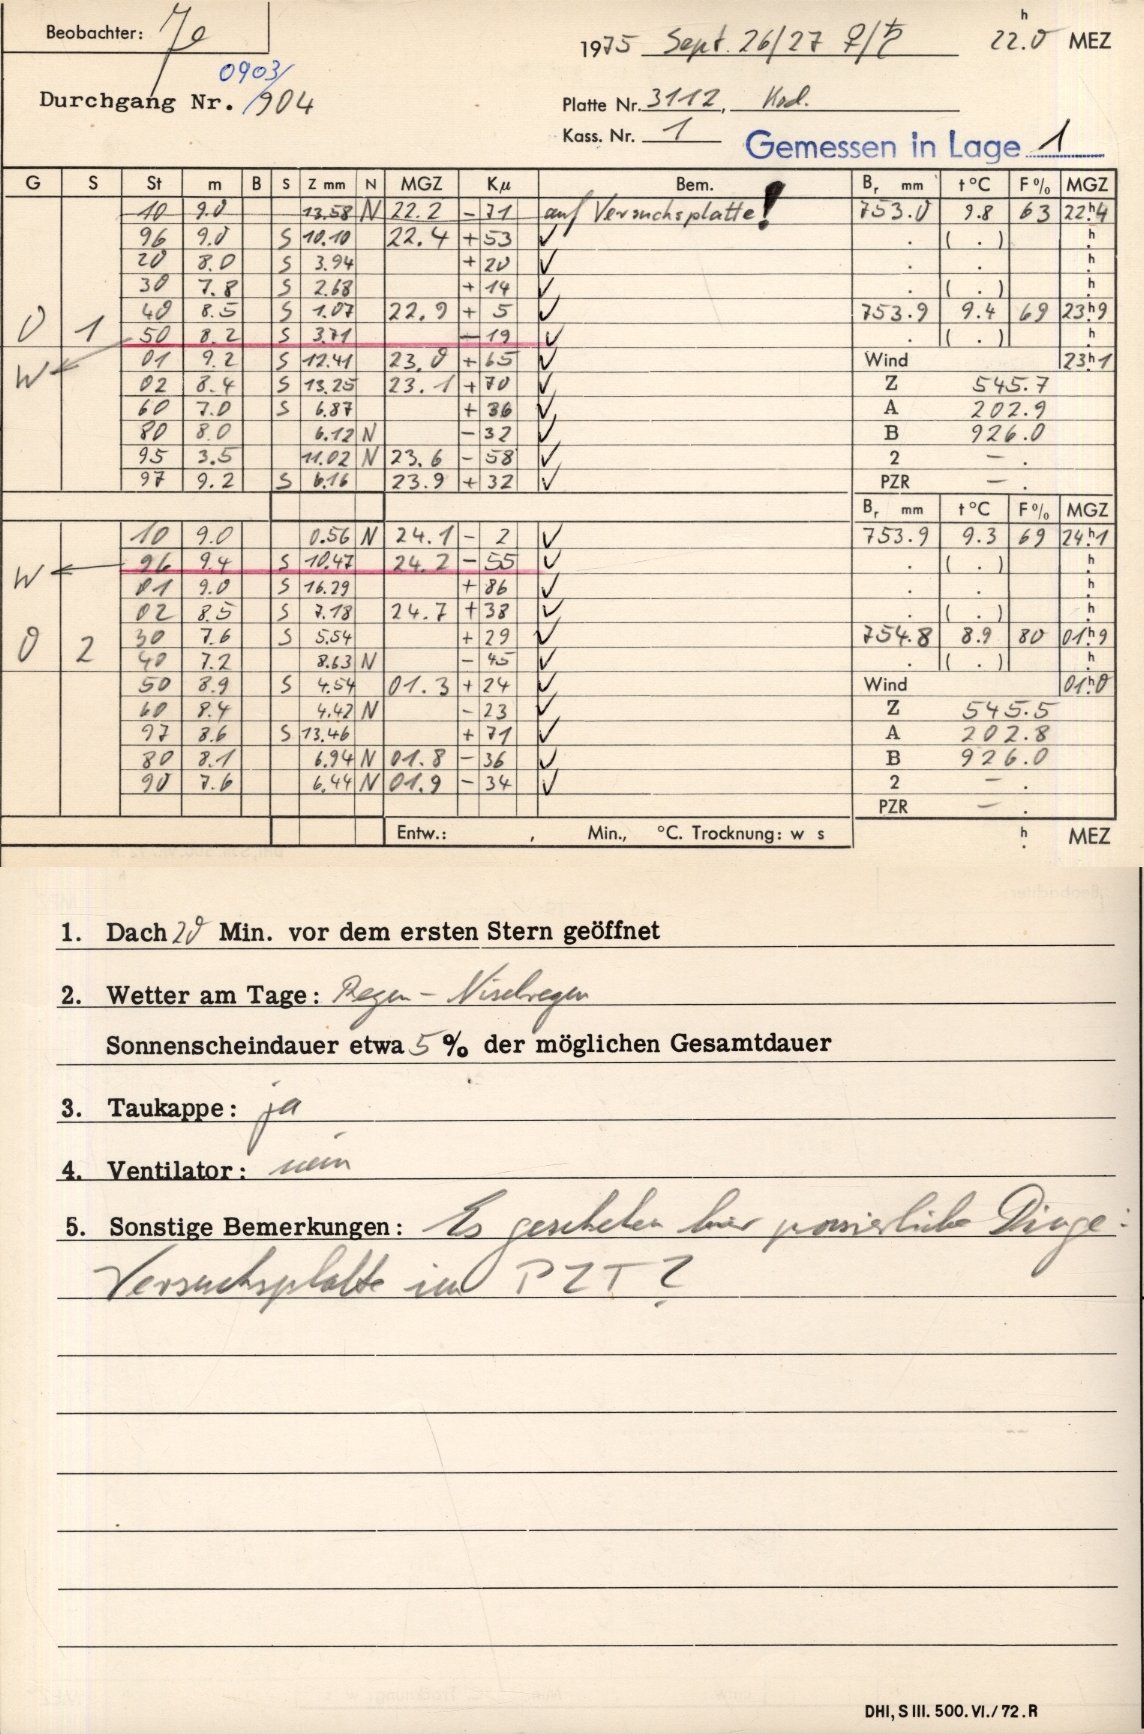 Beobachter: Je
1975 Sept. 26/27 ♀/♄ 22.0 h MEZ
0903/
Durchgang Nr. 904
Platte Nr. 3112, Kod.
Kass. Nr. 1
Gemessen in Lage 1
G S St m B S Z mm N MGZ Kμ Bem. Br mm t°C F% MGZ
10 9.0 13.58 N 22.2 - 71 auf Versuchsplatte! 753.0 9.8 63 22h4
96 9.0 S 10.10 22.4 + 53 ✓ . ( . ) h
20 8.0 S 3.94 + 20 ✓ . . h
30 7.8 S 2.68 + 14 ✓ . ( . ) h
0 1 40 8.5 S 1.07 22.9 + 5 ✓ 753.9 9.4 69 23h9
50 8.2 S 3.71 - 19 ✓ . ( . ) h
W 01 9.2 S 12.41 23.0 + 65 ✓ Wind 23h1
02 8.4 S 13.25 23.1 + 70 ✓ Z 545.7
60 7.0 S 6.87 + 36 ✓ A 202.9
80 8.0 6.12 N - 32 ✓ B 926.0
95 3.5 11.02 N 23.6 - 58 ✓ 2 - .
97 9.2 S 6.16 23.9 + 32 ✓ PZR - .
Br mm t°C F% MGZ
10 9.0 0.56 N 24.1 - 2 ✓ 753.9 9.3 69 24h1
W 96 9.4 S 10.47 24.2 - 55 ✓ . ( . ) h
01 9.0 S 16.29 + 86 ✓ . . h
02 8.5 S 7.18 24.7 + 38 ✓ . ( . ) h
0 2 30 7.6 S 5.54 + 29 ✓ 754.8 8.9 80 01h9
40 7.2 8.63 N - 45 ✓ . ( . ) h
50 8.9 S 4.54 01.3 + 24 ✓ Wind 01h0
60 8.4 4.42 N - 23 ✓ Z 545.5
97 8.6 S 13.46 + 71 ✓ A 202.8
80 8.1 6.94 N 01.8 - 36 ✓ B 926.0
90 7.6 6.44 N 01.9 - 34 ✓ 2 - .
PZR - .
Entw.: , Min., °C. Trocknung: w s h MEZ
1. Dach 20 Min. vor dem ersten Stern geöffnet
2. Wetter am Tage: Regen - Nieselregen
Sonnenscheindauer etwa 5 % der möglichen Gesamtdauer
3. Taukappe: ja
4. Ventilator: nein
5. Sonstige Bemerkungen: Es geschehen hier possierliche Dinge:
Versuchsplatte im PZT?
DHI, S III. 500. VI./72. R